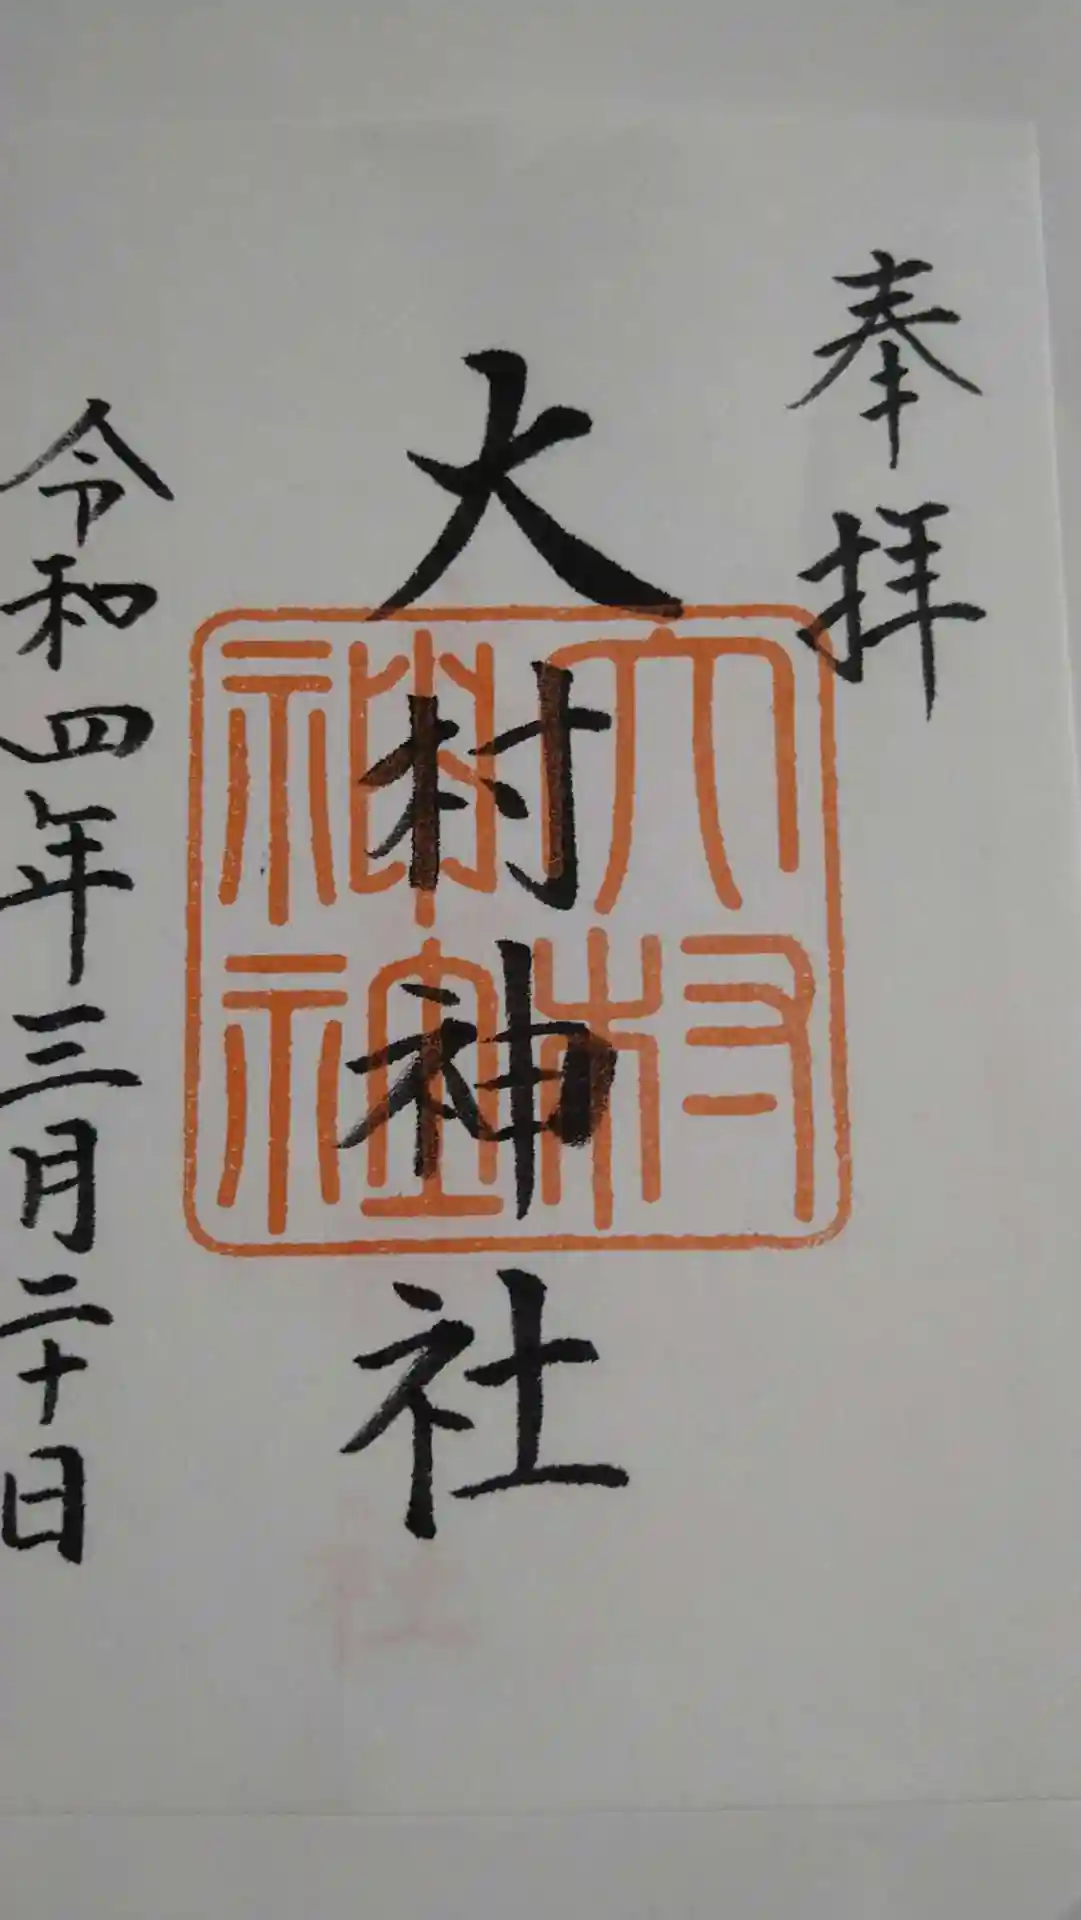 奉拝
大村神社
大村神社
令和四年三月二十日